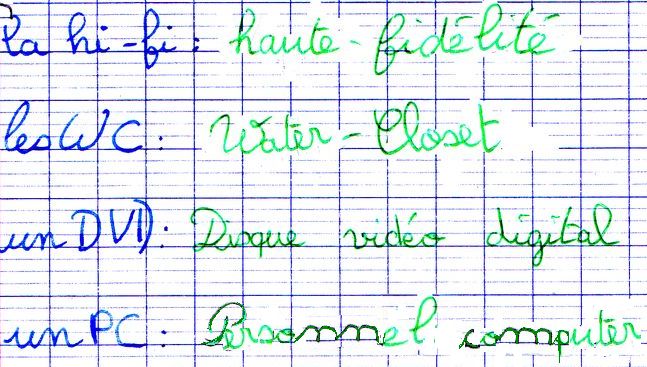 la hi-fi : haute-fidélité
les WC : Water-Closet
un DVD : Disque vidéo digital
un PC : Personnel computer